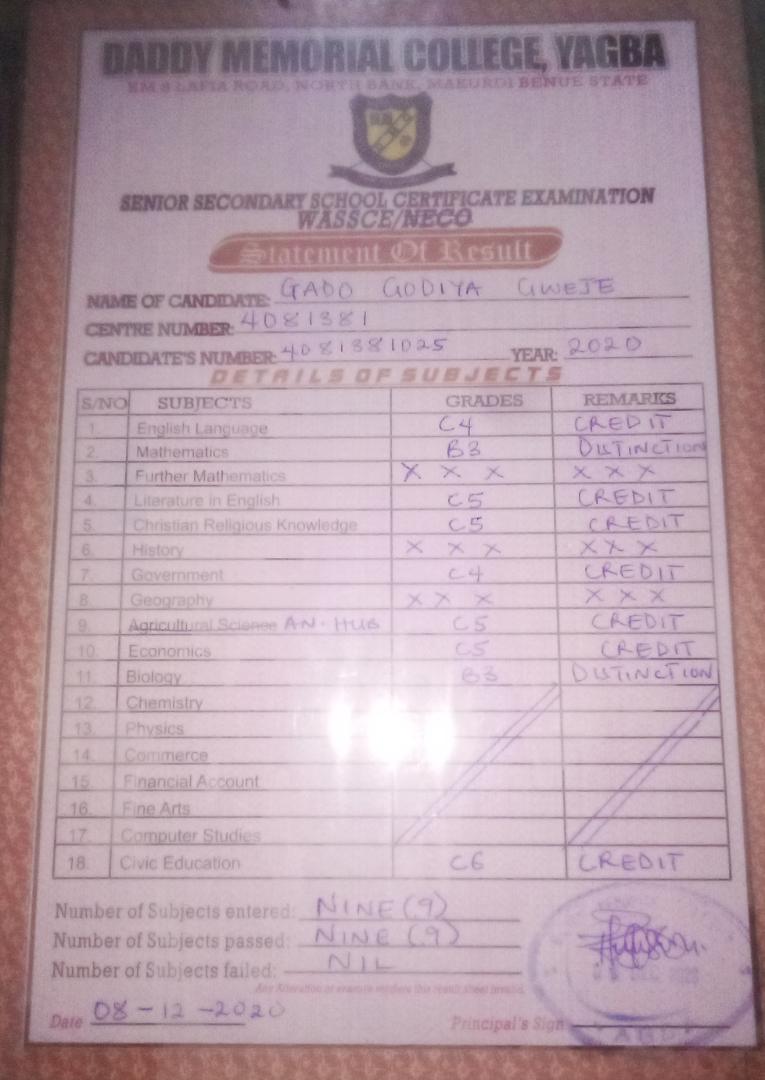 DADDY MEMORIAL COLLEGE, YAGBA
KM 8 LAFIA ROAD, NORTH BANK, MAKURDI BENUE STATE
SENIOR SECONDARY SCHOOL CERTIFICATE EXAMINATION
WASSCE/NECO
Statement Of Result
NAME OF CANDIDATE: GADO GODIYA GWEJE
CENTRE NUMBER: 4081381
CANDIDATE'S NUMBER: 4081381025 YEAR: 2020
DETAILS OF SUBJECTS
S/NO SUBJECTS GRADES REMARKS
1. English Language C4 CREDIT
2. Mathematics B3 DISTINCTION
3. Further Mathematics X X X X X X
4. Literature in English C5 CREDIT
5. Christian Religious Knowledge C5 CREDIT
6. History X X X X X X
7. Government C4 CREDIT
8. Geography X X X X X X
9. Agricultural Science AN. HUB C5 CREDIT
10. Economics C5 CREDIT
11. Biology B3 DISTINCTION
12. Chemistry
13. Physics
14. Commerce
15. Financial Account
16. Fine Arts
17. Computer Studies
18. Civic Education C6 CREDIT
Number of Subjects entered: NINE (9)
Number of Subjects passed: NINE (9)
Number of Subjects failed: NIL
Any Alteration or erasure renders this result sheet invalid.
Date 08-12-2020 Principal's Sign